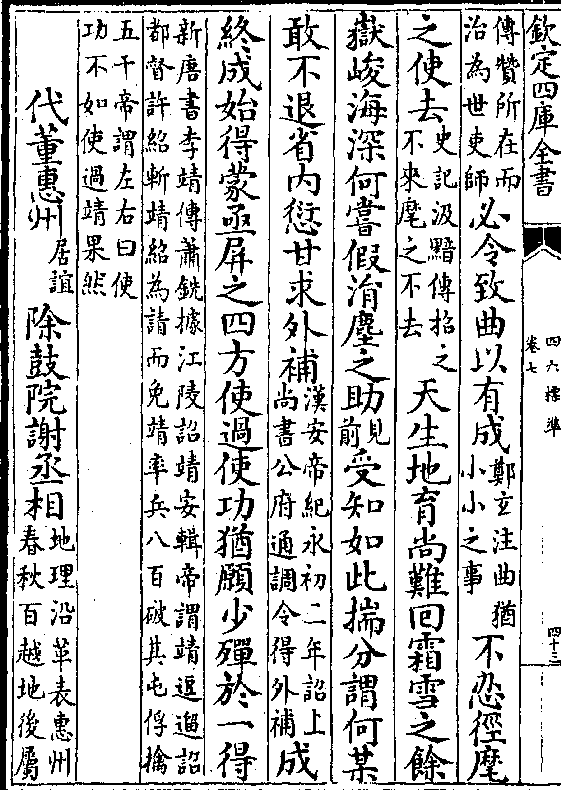 欽定四庫全書
四六標準
卷七
四十三
傳贊所在而
治為世吏師
必令致曲以有成
鄭玄注曲猶
小小之事
不忍徑麾
之使去
史記汲黯傳招之
不來麾之不去
天生地育尚難回霜雪之餘
嶽峻海深何嘗假涓塵之助
見
前
受知如此揣分謂何某
敢不退省内愆甘求外補
漢安帝紀永初二年詔上
尚書公府通調令得外補
成
終成始得蒙亟屏之四方使過使功猶願少殫於一得
新唐書李靖傳蕭銑據江陵詔靖安輯帝謂靖逗遛詔
都督許紹斬靖紹為請而免靖率兵八百破其屯俘擒
五千帝謂左右曰使
功不如使過靖果然
代董惠州
居誼
除鼓院謝丞相
地理沿革表惠州
春秋百越地後屬